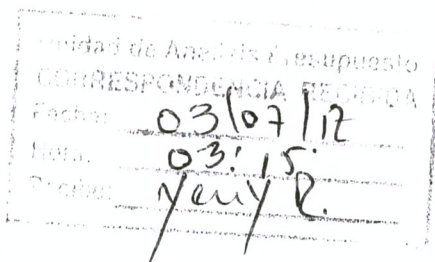 Unidad de Analisis Presupuesto
CORRESPONDENCIA RECIBIDA
Fecha: 03/07/12
Hora: 03:15
Recibe: Yeny R.